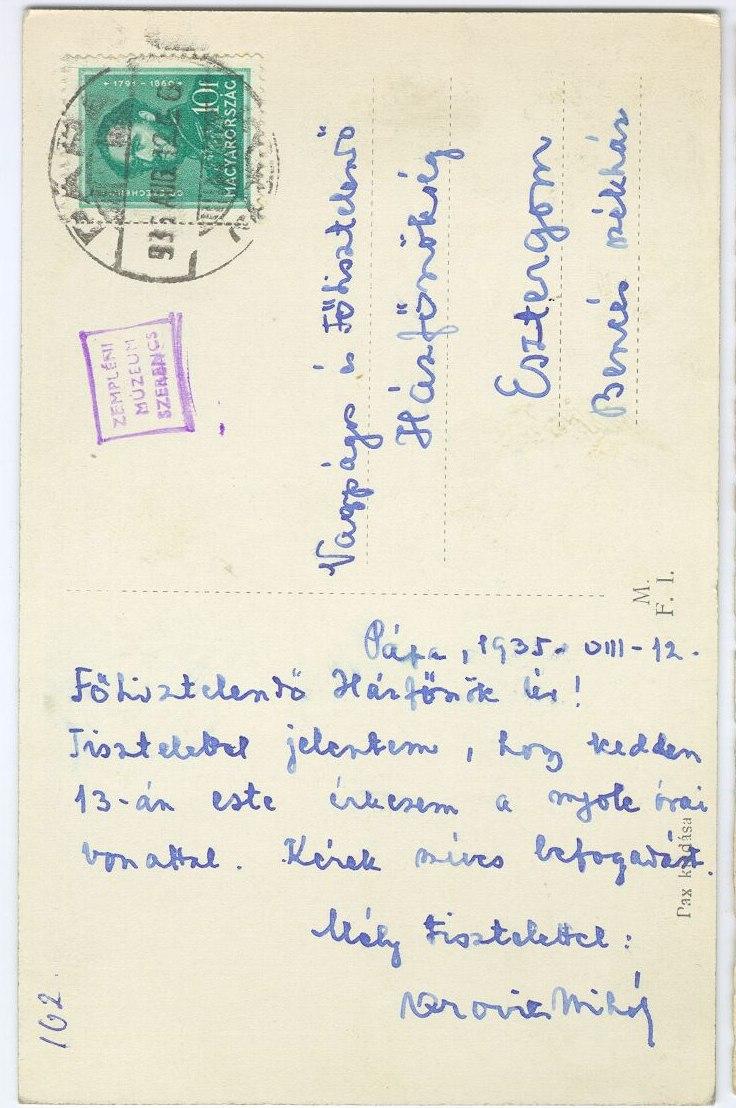 1791-1860
10f
MAGYARORSZÁG
ZEMPLÉNI
MÚZEUM
SZERENCS
Nagyságos és Főtisztelendő
Házfőnökség
Esztergom
Bencés székház
M.
F. I.
Pápa, 1935. VIII-12.
Főtisztelendő Házfőnök Úr!
Tisztelettel jelentem, hogy kedden
13-án este érkezem a nyolc órai
vonattal. Kérek szíves befogadást.
Mély tisztelettel:
Mihály
Pax kiadása
162.